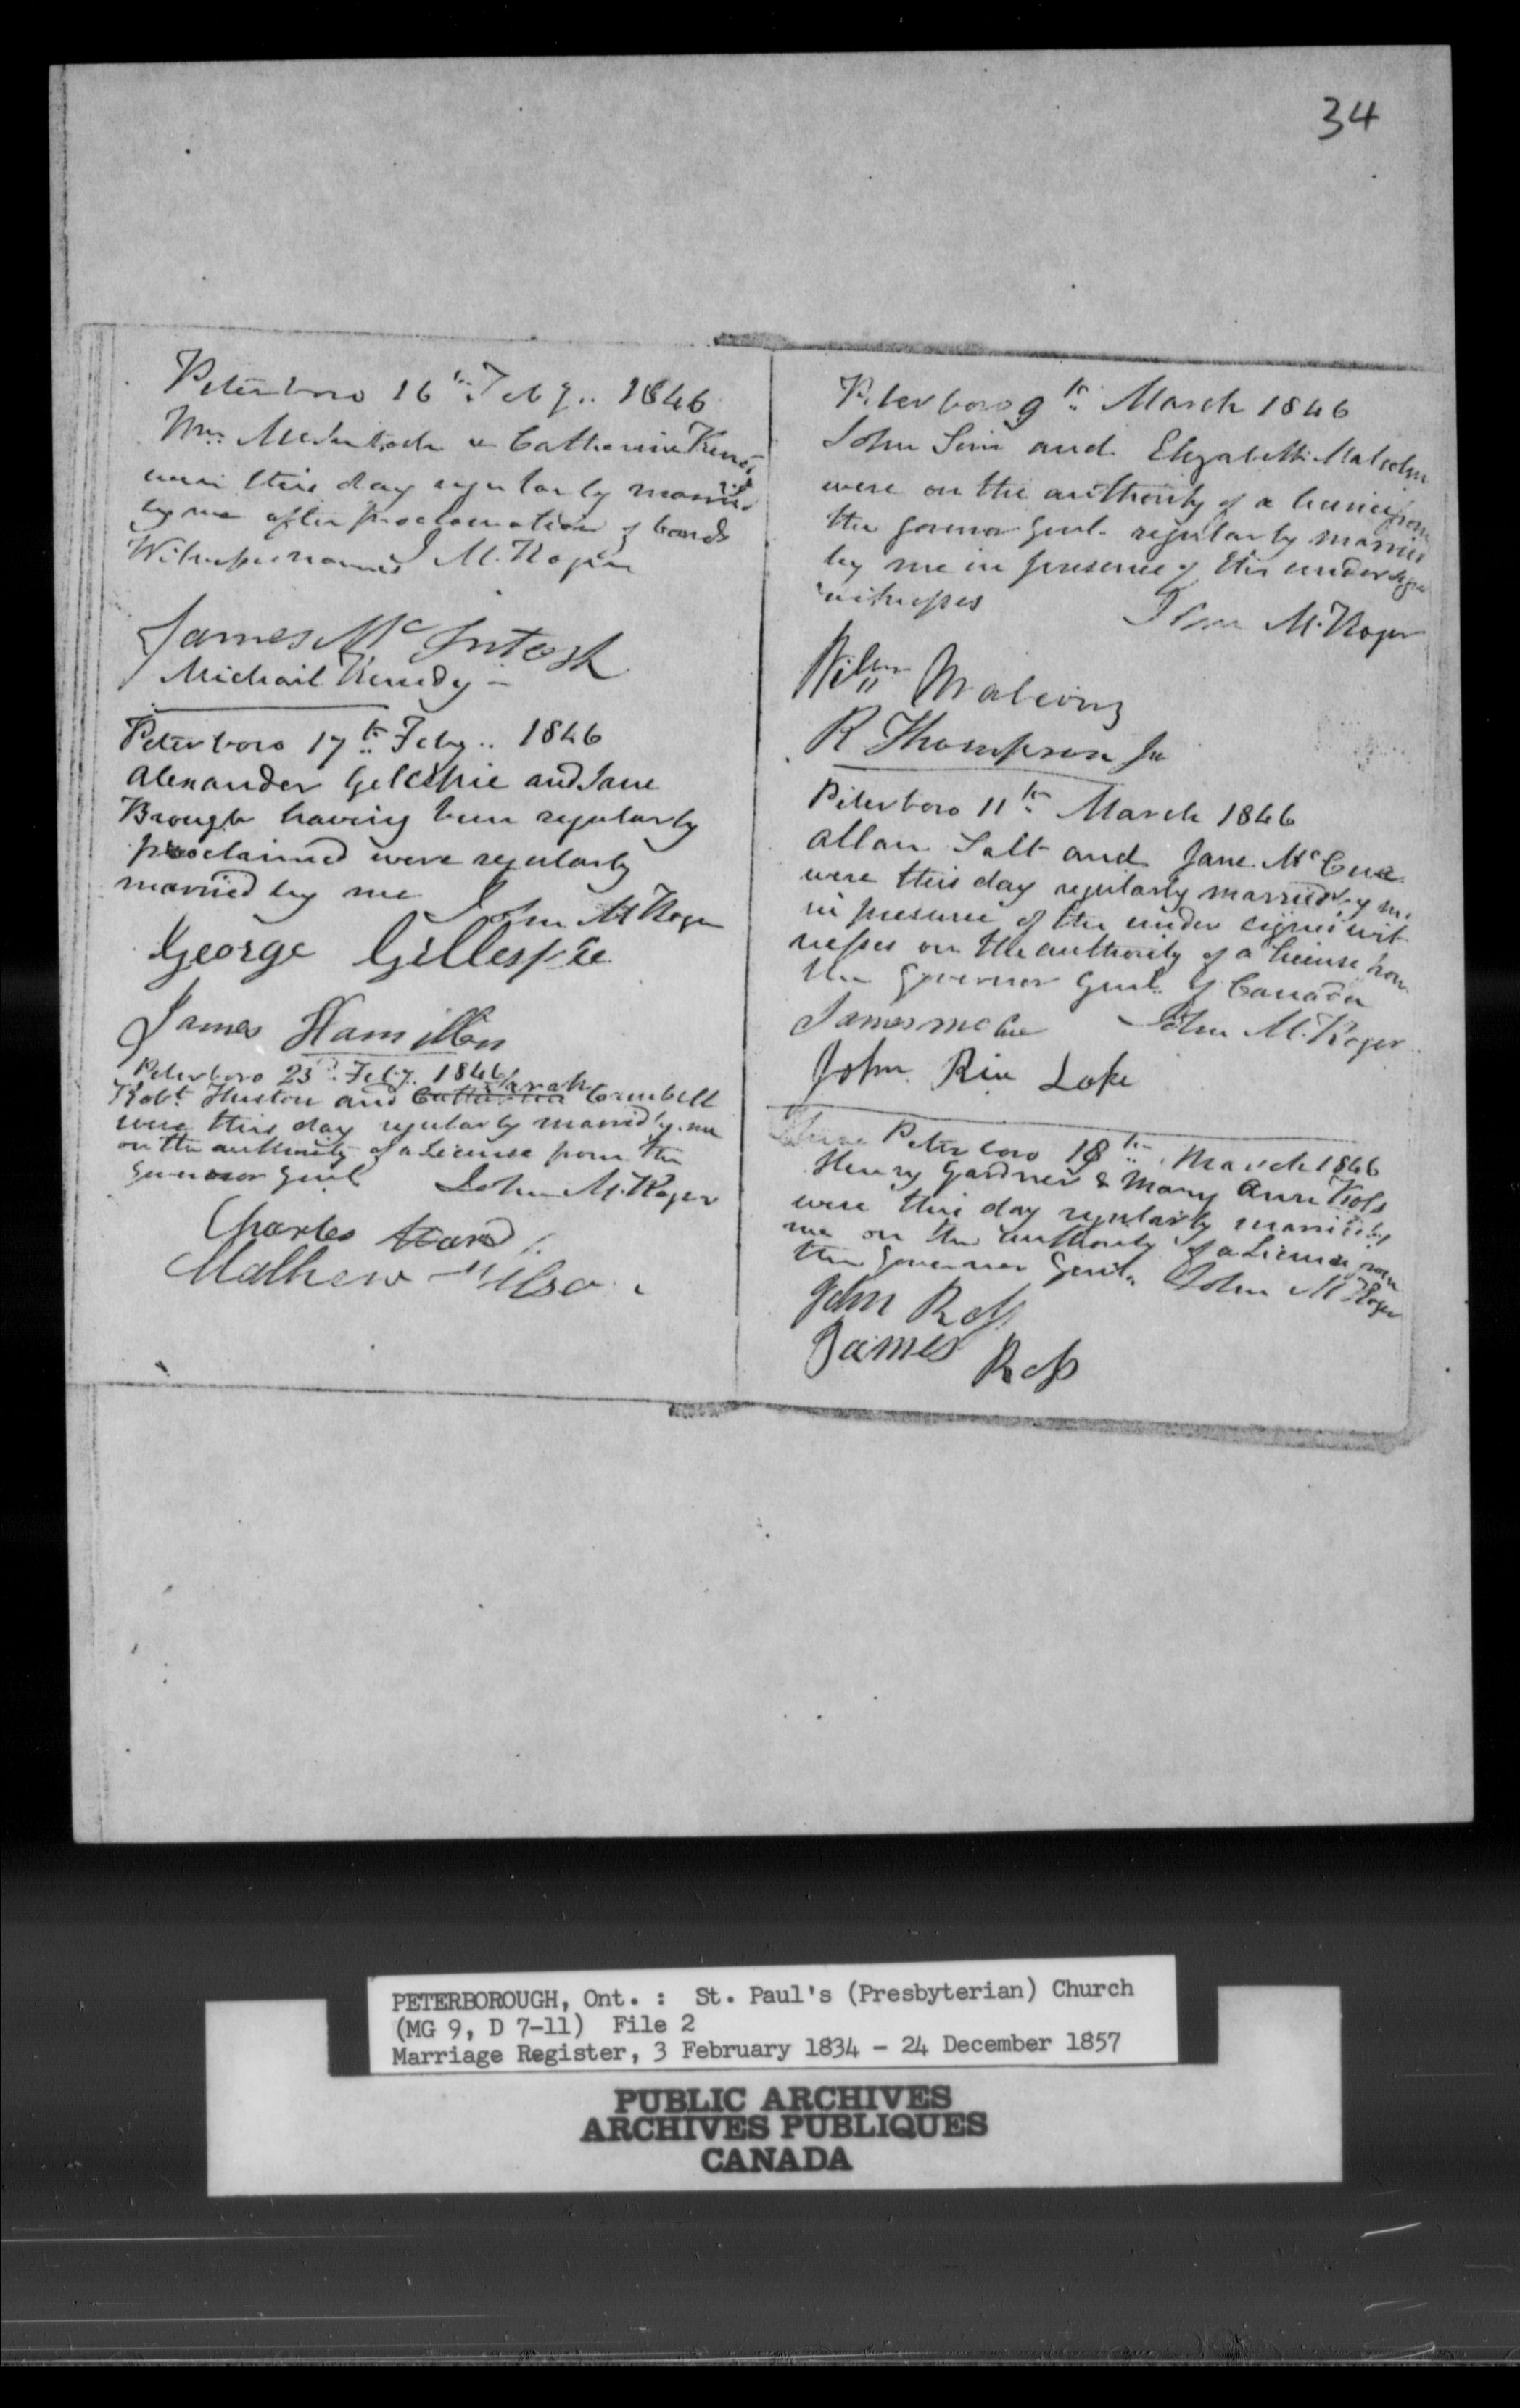 34
Peterboro 16th Feby.. 1846
Wm McIntosh & Catherine
were this day regularly married
by me after proclamation of bands
Witnesses names J M. Roger
James McIntosh
Michail Kenedy
Peterboro 17th Feby.. 1846
Alexander Gilespie and Jane
Brough having been regularly
proclaimed were regularly
married by me
John M Roger
George Gillespie
James Hamilton
Peterboro 23d Feby. 1846
Robt. Huston and Catherine Sarah Cambell
were this day regularly married by me
on the authority of a License from the
Governor Genl
John M. Roger
Charles
Mathew
Peterboro 9th March 1846
John Sim and Elizabeth Malcolm
were on the authority of a licence from
the Govenor Genl. regularly married
by me in presence of the
witnesses
John M. Roger
Wilm
R Thompson Jr
Peterboro 11th March 1846
Allan Salt and Jane McCue
were this day regularly married by me
in presence of the under signed wit
nesses on the authority of a License from
the Governor Genl. of Canada
James McCue
John M. Roger
John Rice Lake
Peterboro 18th March 1846
Henry Gardner & Mary Ann Ross
were this day regularly married by
me on the authority of a License from
the Governor Genl.
John M Roger
John Ross
James Ross
PETERBOROUGH, Ont. : St. Paul's (Presbyterian) Church
(MG 9, D 7-11) File 2
Marriage Register, 3 February 1834 - 24 December 1857
PUBLIC ARCHIVES
ARCHIVES PUBLIQUES
CANADA